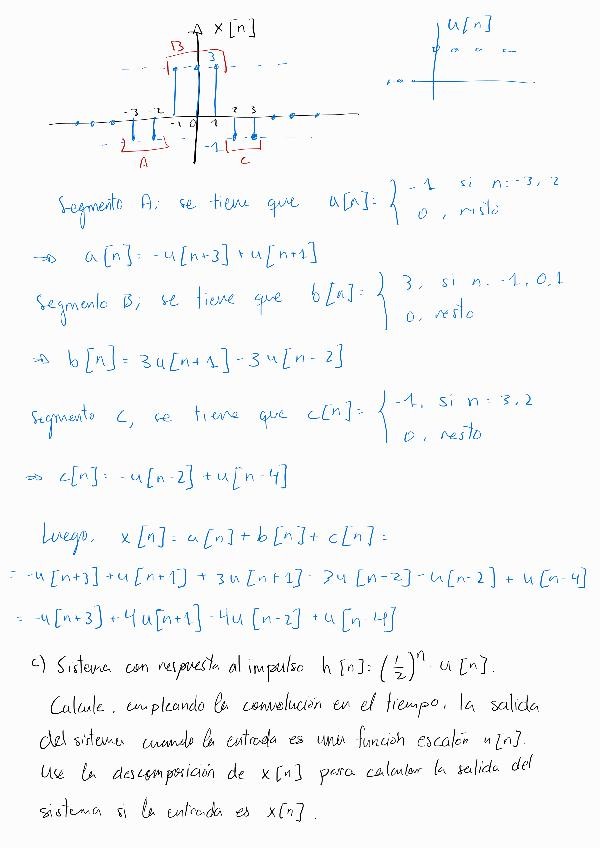 x[n]
u[n]
B
3
-3 -2 -1 0 1 2 3
-1
A
C
Segmento A; se tiene que a[n]= { -1 si n=-3, 2
0, resto
⇒ a[n]= -u[n+3] + u[n+1]
Segmento B; se tiene que b[n]= { 3, si n=-1,0,1
0, resto
⇒ b[n] = 3u[n+1] - 3u[n-2]
Segmento C, se tiene que c[n]= { -1, si n=3,2
0, resto
⇒ c[n]= -u[n-2] + u[n-4]
Luego, x[n]= a[n] + b[n] + c[n] =
= -u[n+3] + u[n+1] + 3u[n+1] - 3u[n-2] - u[n-2] + u[n-4]
= -u[n+3] + 4u[n+1] - 4u[n-2] + u[n-4]
c) Sistema con respuesta al impulso h[n]= (1/2)^n · u[n].
Calcule, empleando la convolución en el tiempo, la salida
del sistema cuando la entrada es una función escalón u[n].
Use la descomposición de x[n] para calcular la salida del
sistema si la entrada es x[n].